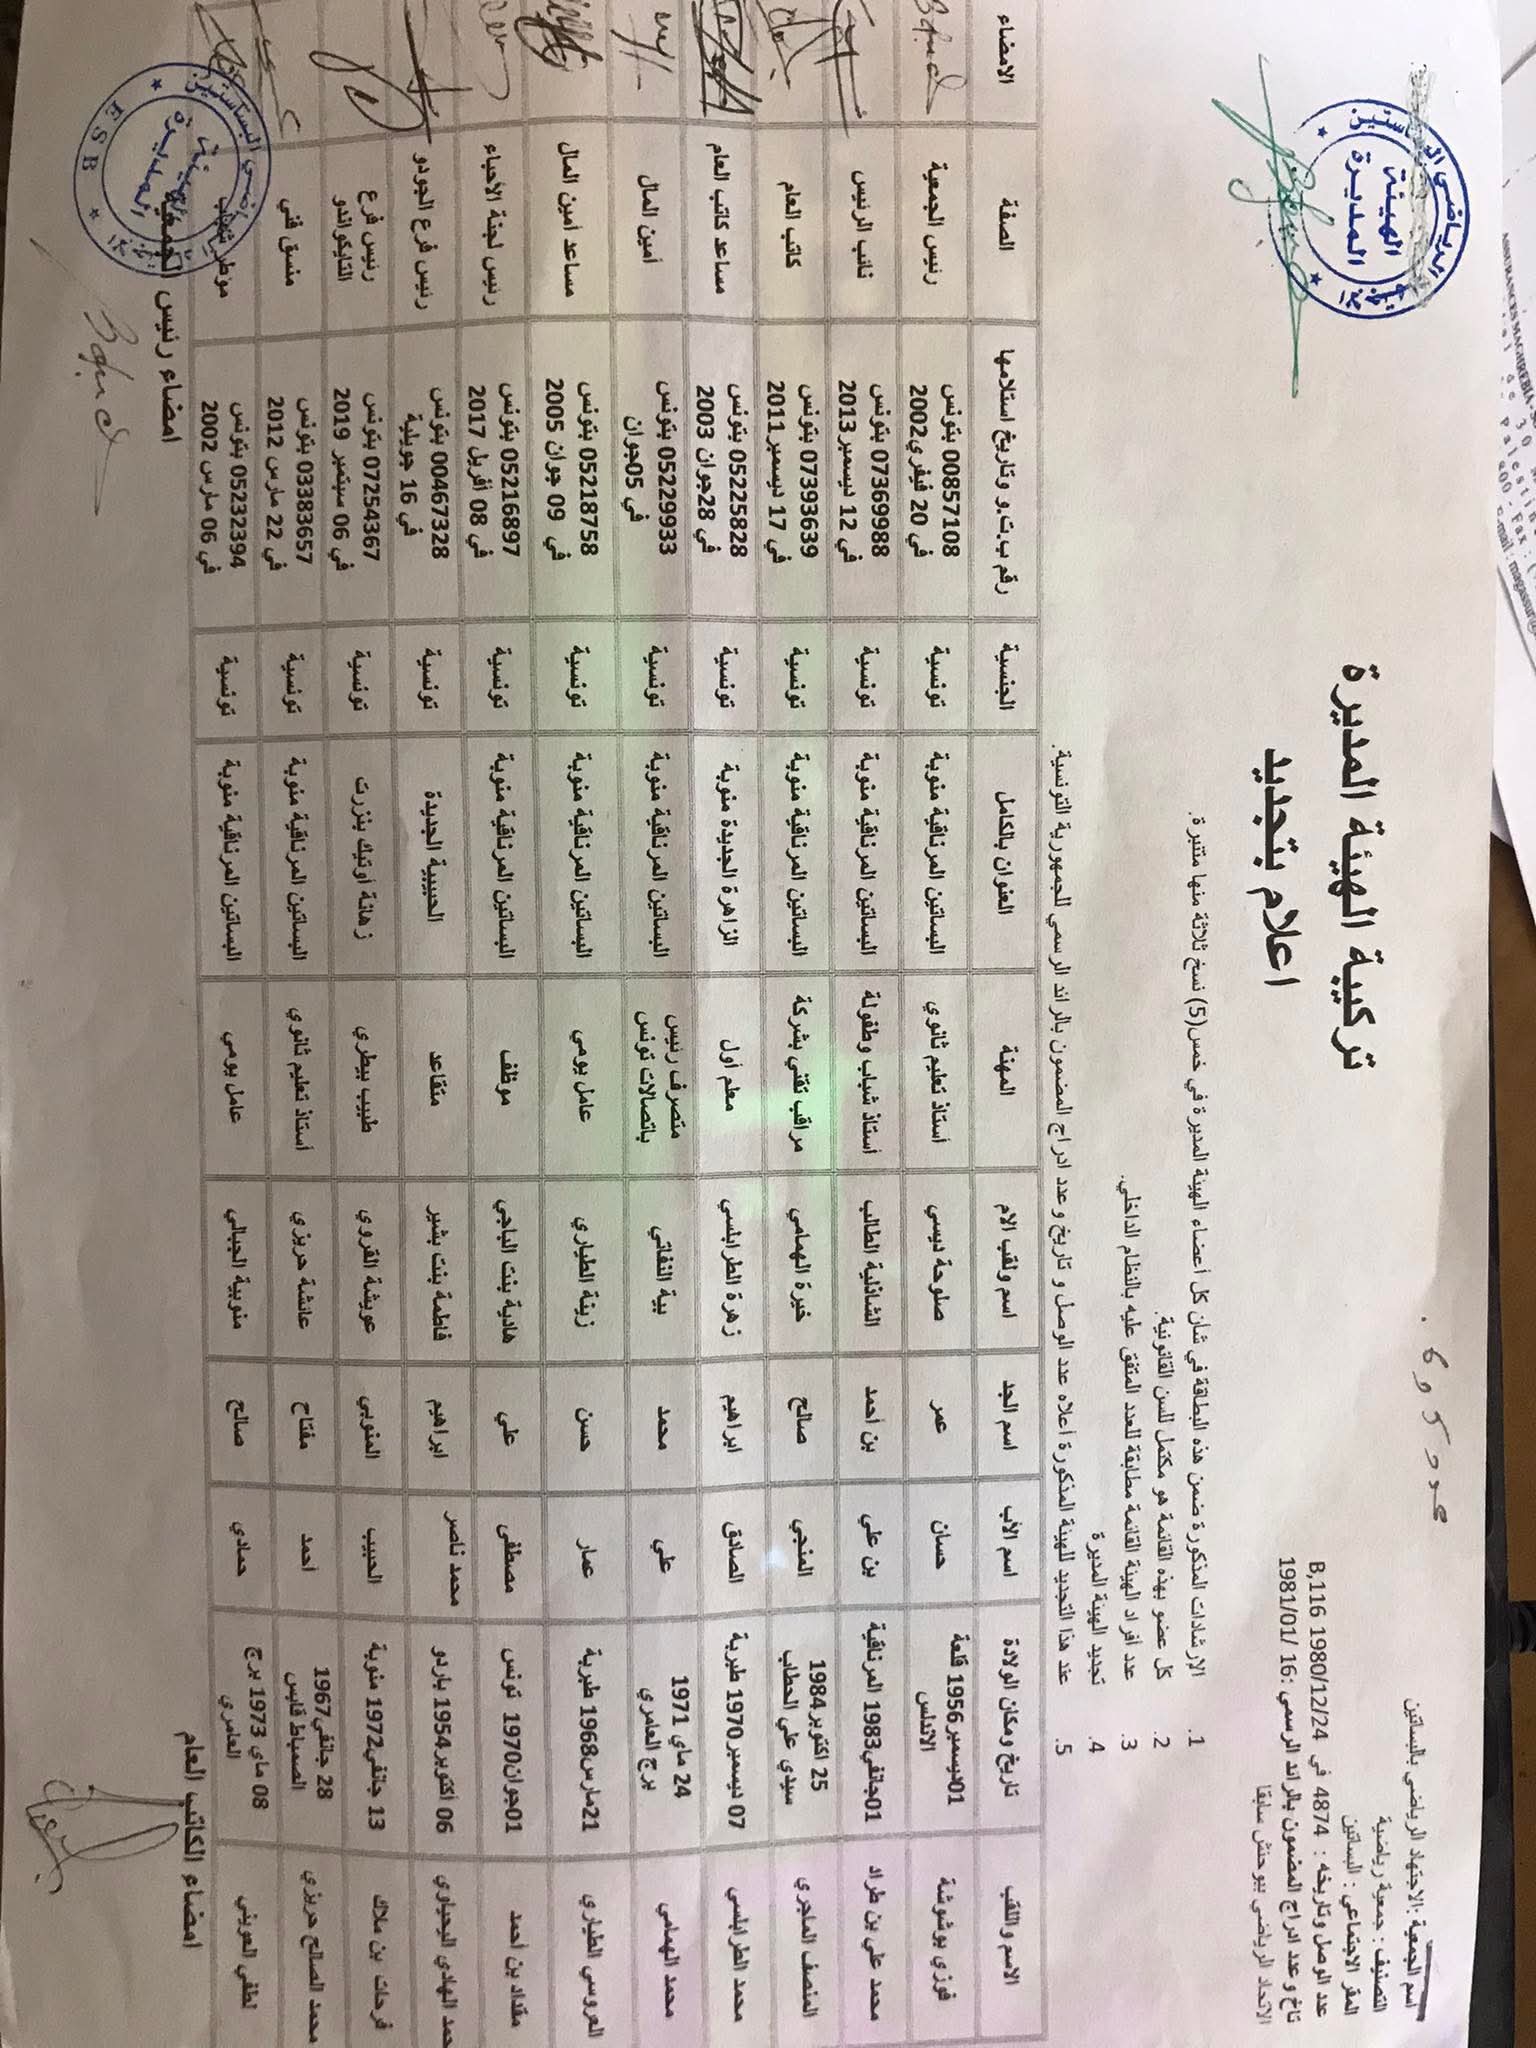 اسم الجمعية :الاجتهاد الرياضي بالبساتين
التصنيف : جمعية رياضية
المقر الاجتماعي : البساتين
عدد الوصل وتاريخه : 4874 في 1980/12/24 B,116
تاخ وعدد ادراج المضمون بالرائد الرسمي :16 /1981/01
الاتحاد الرياضي ببوحنش سابقا
تركيبة الهيئة المديرة
اعلام بتجديد
الهيئة
المديرة
1. الإرشادات المذكورة ضمن هذه البطاقة في شان كل أعضاء الهيئة المديرة في خمس(5) نسخ ثلاثة منها متنبرة.
2. كل عضو بهذه القائمة هو مكتمل للسن القانونية.
3. عدد أفراد الهيئة القائمة مطابقة للعدد المتفق عليه بالنظام الداخلي.
4. تجديد الهيئة المديرة
5. عند هذا التجديد للهيئة المذكورة أعلاه عدد الوصل و تاريخ وعدد ادراج المضمون بالرائد الرسمي للجمهورية التونسية.
الاسم واللقب تاريخ ومكان الولادة اسم الأب اسم الجد اسم ولقب الام المهنة العنوان بالكامل الجنسية رقم ب.ت.و وتاريخ استلامها الصفة الامضاء
فوزي بوشوشة 01ديسمبر1956 قلعة الاندلس حسان عمر صلوحة ديسي أستاذ تعليم ثانوي البساتين المرناقية منوبة تونسية 00857108 بتونس في 20 فيفري2002 رئيس الجمعية
محمد علي بن طراد 01جانفي1983 المرناقية بن علي بن أحمد الشاذلية الطالب أستاذ شباب وطفولة البساتين المرناقية منوبة تونسية 07369988 بتونس في 12 ديسمبر2013 نائب الرئيس
المنصف الماجري 25 اكتوبر1984 سيدي علي الحطاب المنجي صالح خيرة الهمامي مراقب تقني بشركة البساتين المرناقية منوبة تونسية 07393639 بتونس في 17 ديسمبر2011 كاتب العام
محمد الطرابلسي 07 ديسمبر1970 طبرية الصادق ابراهيم زهرة الطرابلسي معلم أول الزاهرة الجديدة منوبة تونسية 05225828 بتونس في 28جوان 2003 مساعد كاتب العام
محمد الهمامي 24 ماي 1971 برج العامري علي محمد بية النفاتي متصرف رئيس باتصالات تونس البساتين المرناقية منوبة تونسية 05229933 بتونس في 05جوان أمين المال
العروسي الطياري 21مارس1968 طبرية عمار حسن زينة الطياري عامل يومي البساتين المرناقية منوبة تونسية 05218758 بتونس في 09 جوان 2005 مساعد أمين المال
مقداد بن أحمد 01جوان1970 تونس مصطفى علي هادية بنت الباجي موظف البساتين المرناقية منوبة تونسية 05216897 بتونس في 08 أفريل 2017 رئيس لجنة الأحباء
حمد الهادي اليحياوي 06 أكتوبر1954 باردو محمد ناصر ابراهيم فاطمة بنت بشير متقاعد الحبيبية الجديدة تونسية 00467328 بتونس في 16 جويلية رئيس فرع الجودو
فرحات بن ملاك 13 جانفي1972 منوبة الحبيب المنوبي عويشة القروي طبيب بيطري زهانة أوتيك بنزرت تونسية 07254367 بتونس في 06 سبتمبر 2019 رئيس فرع التايكواندو
محمد الصالح حريزي 28 جانفي1967 الصمباط قابس احمد مفتاح عائشة حريزي أستاذ تعليم ثانوي البساتين المرناقية منوبة تونسية 03383657 بتونس في 22 مارس 2012 منسق فني
لطفي العويني 08 ماي 1973 برج العامري حمادي صالح منوبية الجبالي عامل يومي البساتين المرناقية منوبة تونسية 05232394 بتونس في 06 مارس 2002
امضاء الكاتب العام
امضاء رئيس الجمعية
الهيئة
المديرة
ESB